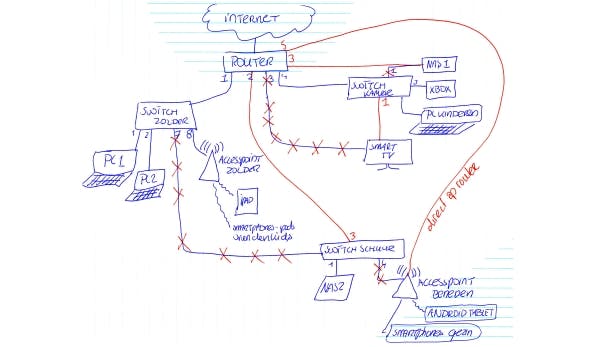 INTERNET
5
ROUTER
3
1
2
3
4
NAS 1
SWITCH
KAMER
XBOX
1
PC KINDEREN
SWITCH
ZOLDER
1
2
7
8
PC1
PC2
ACCESSPOINT
ZOLDER
iPAD
SMART
TV
direct op router
smartphones-ipads
vriendenkids
3
SWITCH SCHUUR
1
4
NAS2
ACCESSPOINT
BENEDEN
ANDROID TABLET
smartphones gezin